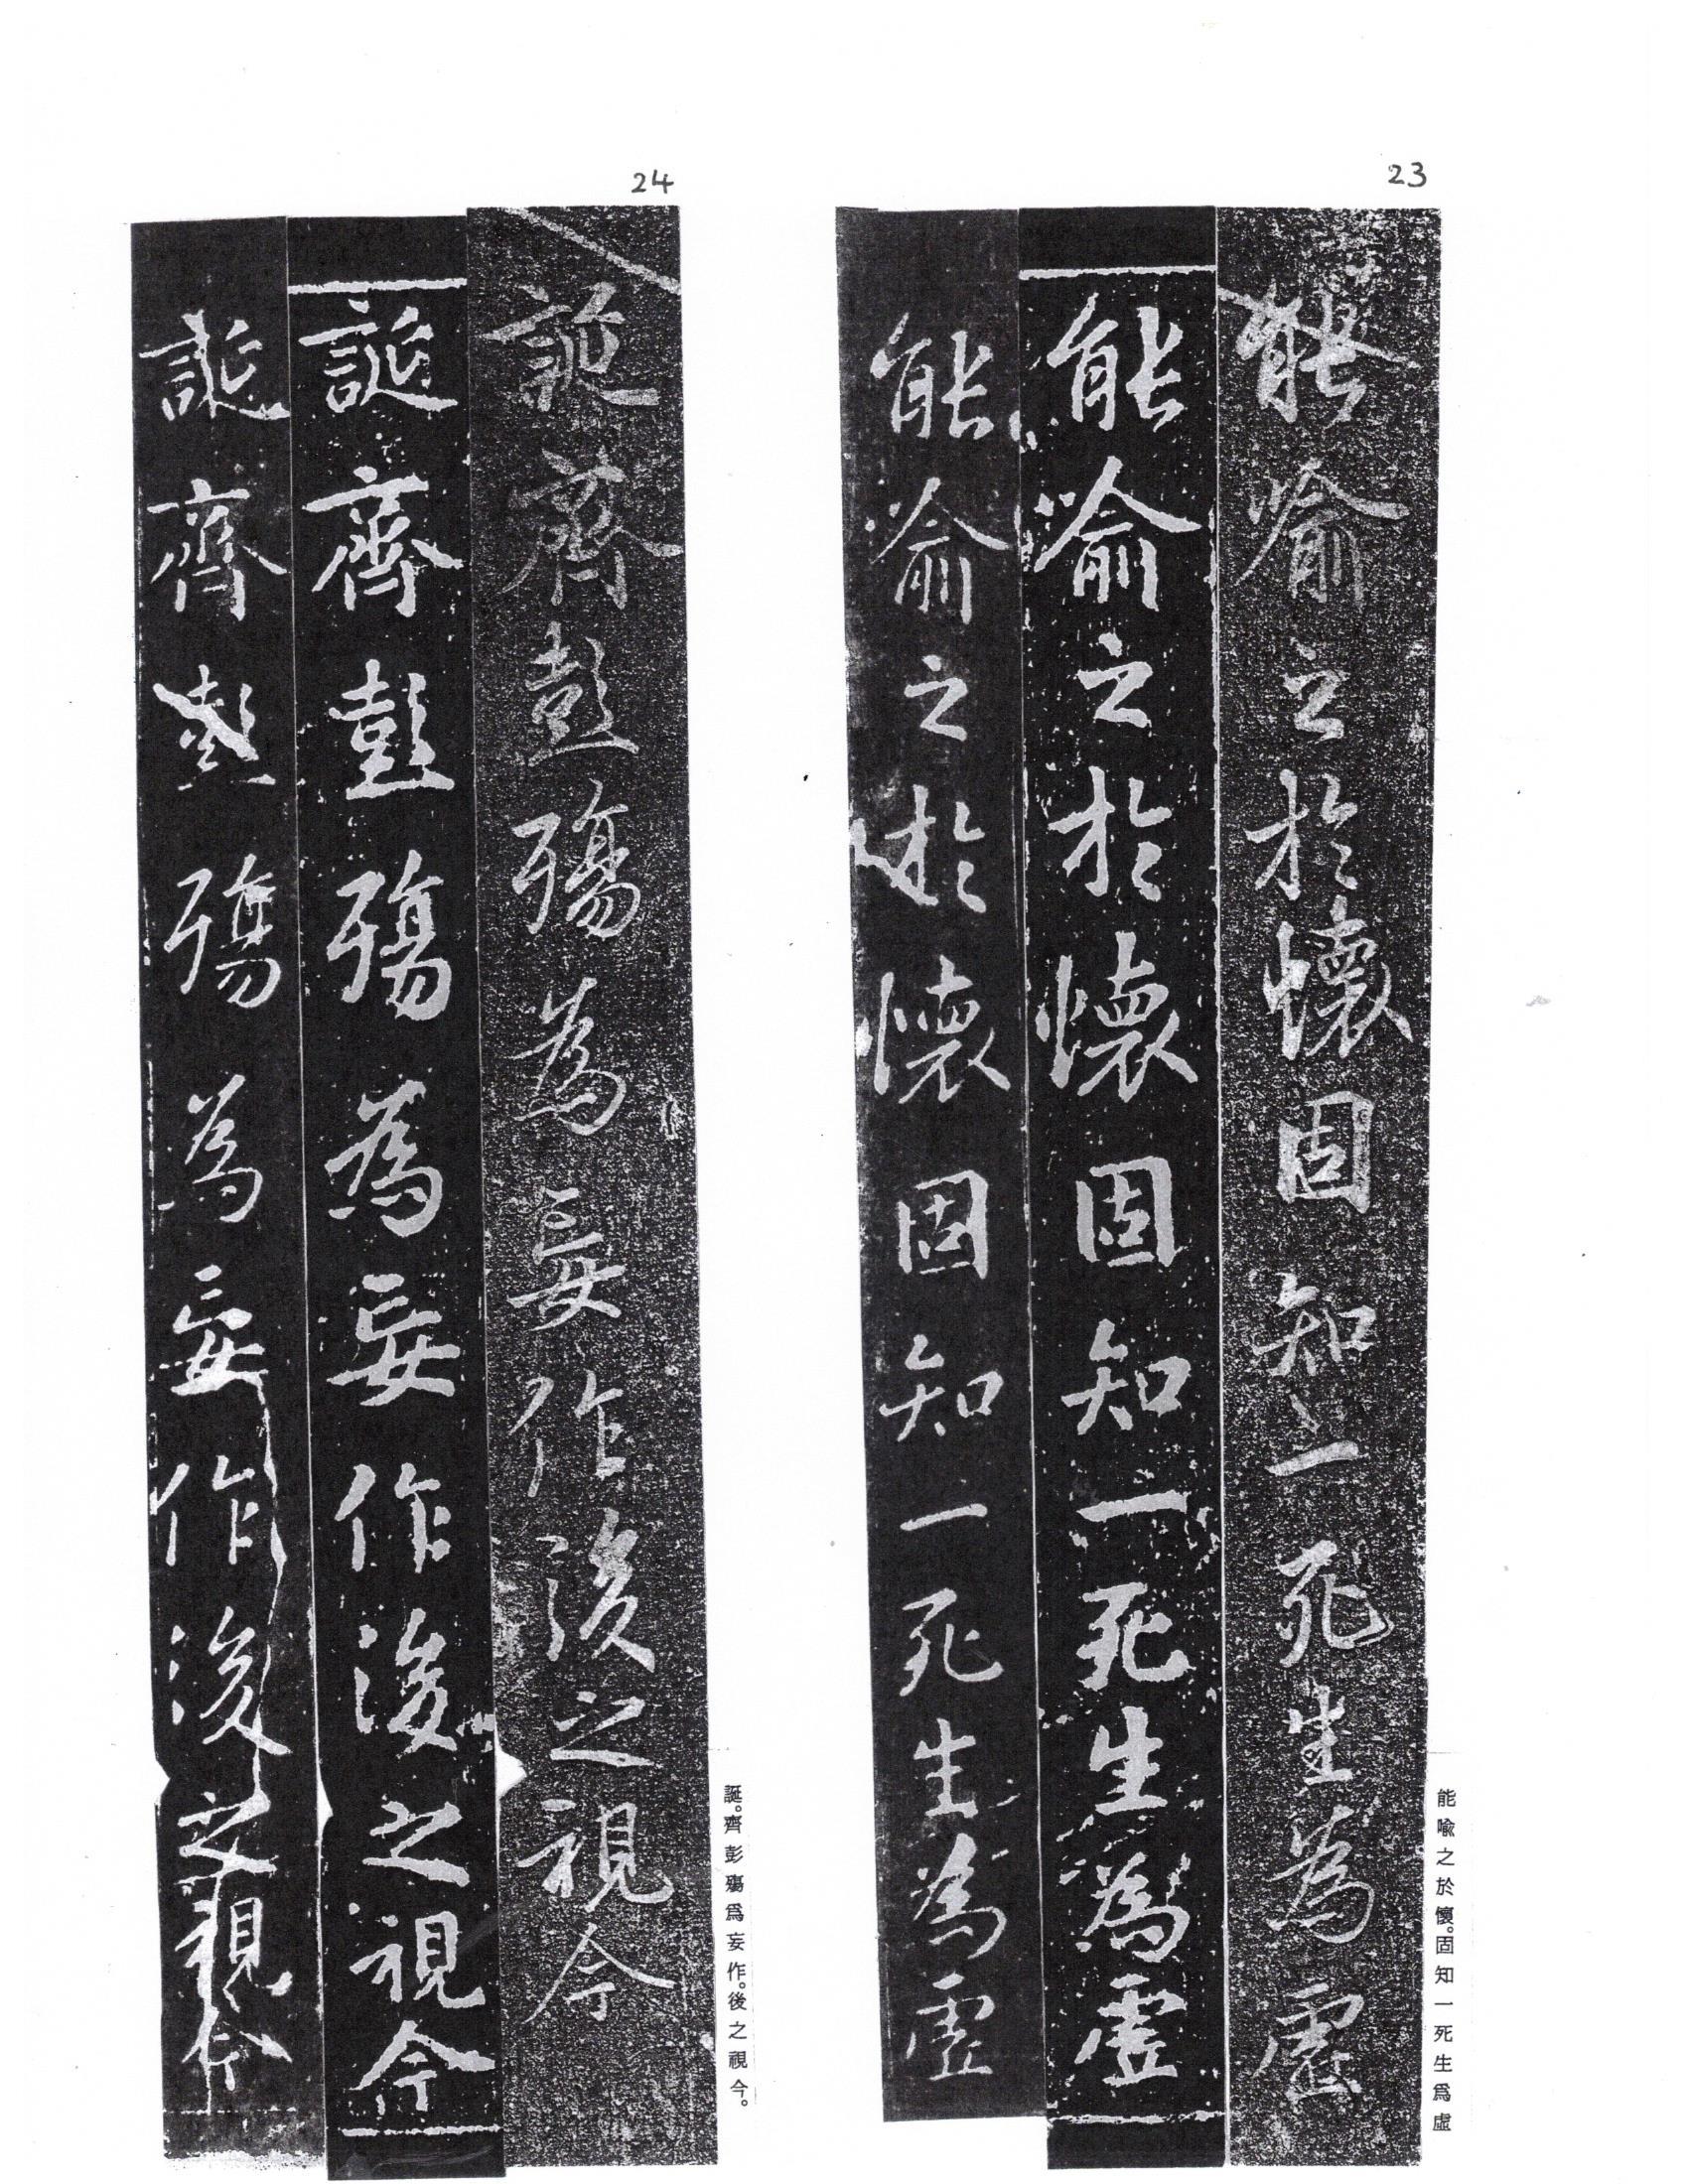 23
能喻之於懷固知一死生為虛
能喻之於懷固知一死生為虛
能喻之於懷固知一死生為虛
能喩之於懷。固知一死生爲虛
24
誕齊彭殤為妄作後之視今
誕齊彭殤為妄作後之視今
誕齊彭殤為妄作後之視今
誕。齊彭殤爲妄作。後之視今。